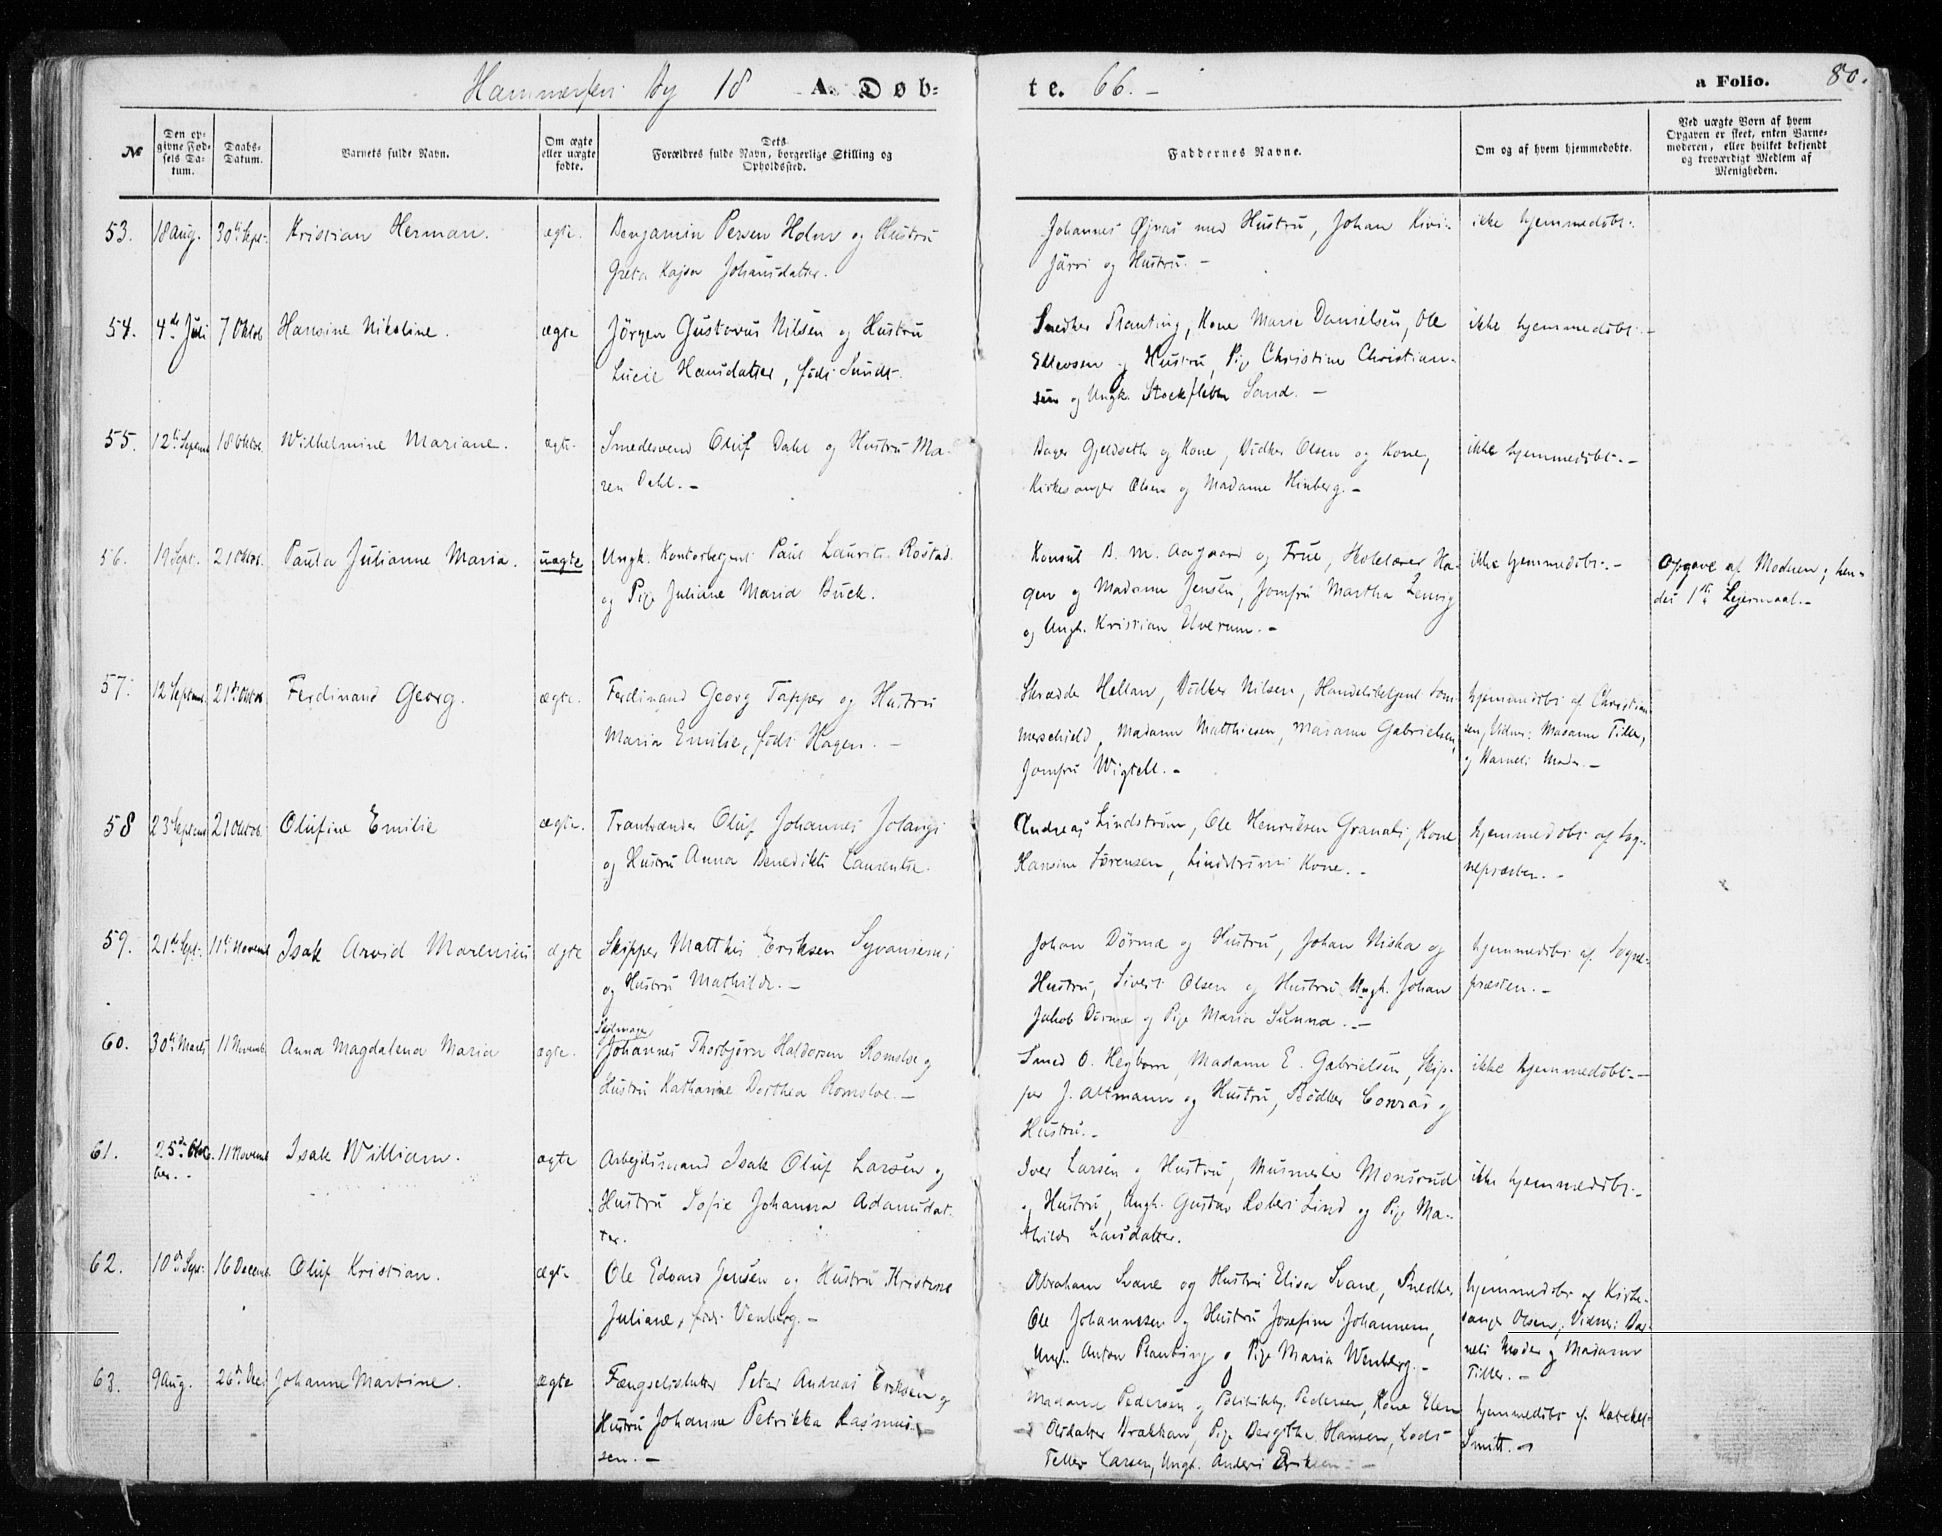 Hammerfest By 18 A. Døb-
te. 66. -
a Folio. 80.
№
Den op-
givne Fød-
sels Da-
tum.
Daabs-
Datum.
Barnets fulde Navn.
Om ægte
eller uægte
fødte.
Dets
Forældres fulde Navn, borgerlige Stilling og
Opholdssted.
Faddernes Navne.
Om og af hvem hjemmedøbte.
Ved uægte Børn af hvem
Opgaven er skeet, enten Barne-
moderen, eller hvilket bekjendt
og troværdigt Medlem af
Menigheden.
53. 18 Aug. 30te Sept. Kristian Herman. ægte. Benjamin Persen Holm og Hustru
Greta Kajsa Johansdatter.
Johannes Øjvas med Hustru, Johan Kivi-
järvi og Hustru. -
ikke hjemmedøbt.
54. 4de Juli 7 Oktob Hansine Nikoline. ægte Jörgen Gustavus Nilsen og Hustru
Lucie Hansdatter, født Sundt.
Snedker Planting, Kone Marie Danielsen, Ole
Ellevsen og Hustru, Pige Christine Christian-
sen og Ungk. Stockfleth Sand. -
ikke hjemmedøbt. -
55. 12te Septemb 18 Oktob. Wilhelmine Mariane. ægte. Smedesvend Oluf Dahl og Hustru Ma-
ren Dahl. -
Bager Gjeldseth og Kone, Bødker Olsen og Kone,
Kirkesanger Olsen og Madame Hinberg. -
ikke hjemmedøbt. -
56. 19 Sept. 21 Oktob. Paula Julianne Maria. uægte Ungk. Kontorbetjent Paul Laurits Rostad
og Pige Juliane Maria Buck.
Konsul B. M. Aagaard og Frue, Skolelærer Ha-
gen og Madame Jensen, Jomfru Martha Lemvig
og Ungk. Kristian Uverum. -
ikke hjemmedøbt. -
Opgave af Moderen, hen-
des 1ste Lejermaal. -
57. 12 Septemb. 21de Oktob Ferdinand Georg. ægte. Ferdinand Georg Tapper og Hustru
Maria Emilie, født Hagen. -
Skrædder Hellan, Bødker Nilsen, Handelsbetjent Som-
merschield, Madame Matthiesen, Madame Gabrielsen,
Jomfru Wigtell. -
hjemmedøbt af Christian-
sen, Vidner: Madame Tiller,
og Barnets Moder. -
58 23 Septemb 21 Oktob. Olufine Emilie ægte. Tranbrænder Oluf Johannes Jolangi
og Hustru Anna Benedikte Laurentse.
Andreas Lindstrøm, Ole Henriksen Granati, Kone
Hansine Sørensen, Lindstrøms Kone. -
hjemmedøbt af Sog-
nepræsten. -
59. 21de Sept. 11te Novemb Isak Arvid Marenius ægte Skipper Matthis Eriksen Syvaniemi
og Hustru Mathilde. -
Johan Dørmæ og Hustru, Johan Niska og
Hustru, Sivert Olsen og Hustru, Ungk. Johan
Jakob Dørmæ og Pige Maria Sunna. -
hjemmedøbt af Sogne-
præsten. -
60. 30te Marts 11 Novemb. Anna Magdalena Maria ægte. Seilmager
Johannes Thorbjørn Haldorsen Romsloe og
Hustru Katharine Dorthea Romsloe. -
Smed O. Hegbom, Madame E. Gabrielsen, Skip-
per J. Altmann og Hustru, Bødker Conrad og
Hustru. -
ikke hjemmedøbt. -
61. 25de Okto-
ber. - 11 Novemb Isak William. ægte Arbejdsmand Isak Oluf Larsen og
Hustru Sofie Johanna Adamsdat-
ter.
Iver Larsen og Hustru, Murmester Monsrud
og Hustru, Ungk. Gustav Robert Lind og Pige Ma-
thilde Larsdatter.
ikke hjemmedøbt. -
62. 10de Sept. 16 Decemb. Oluf Kristian. ægte Ole Edvard Jensen og Hustru Kristine
Juliane, født Venberg. -
Abraham Svane og Hustru Elisa Svane, Snedker
Ole Johannesen og Hustru Josefine Johannesen,
Ungk. Anton Planting og Pige Maria Wenberg. -
hjemmedøbt af Kirke-
sanger Olsen, Vidner: Bar-
nets Moder og Madame
Tiller. -
63. 9 Aug. 26de Dec. Johanne Martine. ægte Fængselsslutter Peter Andreas Eriksen og
Hustru Johanne Petrikka Rasmus-
sen. -
Madame Pedersen og Politibtj. Pedersen, Kone Elen
Olsdatter Brakkan, Pige Bergithe Hansen, Lods
Peller Larsen, Ungk. Anders Eriksen. -
hjemmedøbt af Kateket
Smitt. -